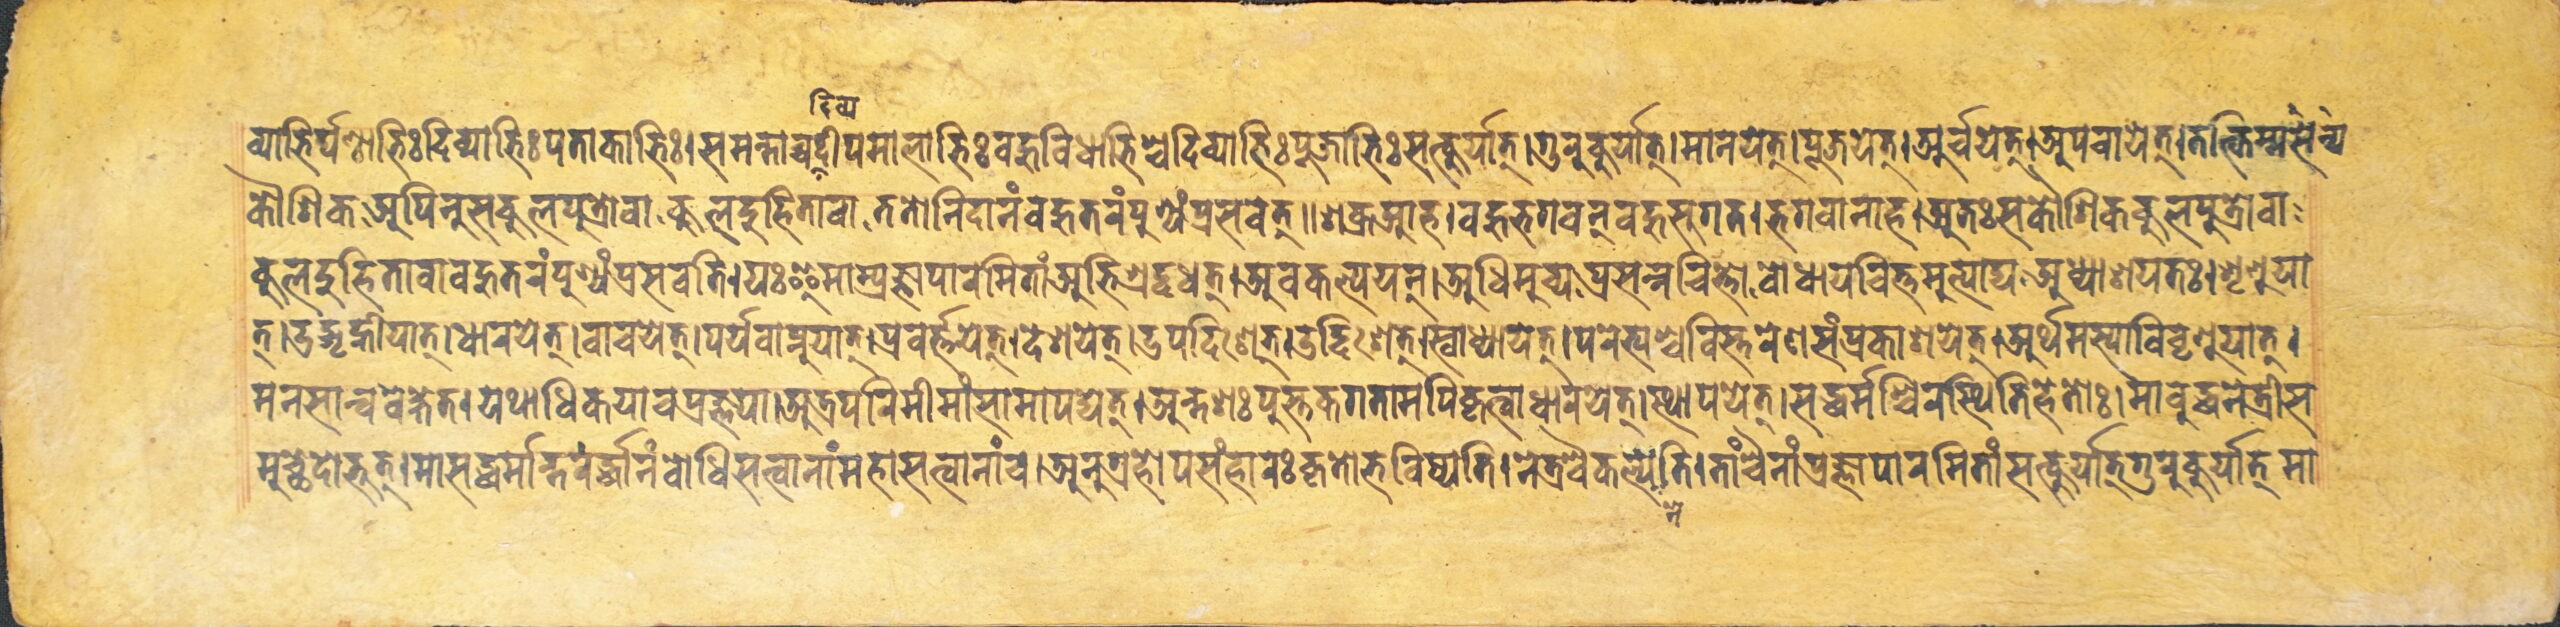 दिव्य
व्याभिर्घण्टाभिः दिव्याभिः पताकाभिः। समन्ताच्च दीपमालाभिः बहुविधाभिश्च दिव्याभिः पूजाभिः सत्कुर्यात्। गुरुकुर्यात्। मानयेत्। पूजयेत्। अर्चयेत्। अपचायेत्। तत्किम्मन्यसे
कौशिक अपि नु स कुलपुत्रो वा कुलदुहिता वा ततो निदानं बहुतरं पुण्यं प्रसवेत्॥ शक्र आह। बहु भगवन् बहु सुगत। भगवानाह। अतः स कौशिक कुलपुत्रो वा
कुलदुहिता वा बहुतरं पुण्यं प्रसवति। यः इमाम्प्रज्ञापारमितां अभिश्रद्दधत्। अवकल्पयन्। अधिमुच्य प्रसन्नचित्तो बोधाय चित्तमुत्पाद्य अध्याशयतः। शृणुया
त्। उद्गृह्णीयात्। धारयेत्। वाचयेत्। पर्यवाप्नुयात्। प्रवर्त्तयेत्। देशयेत्। उपदिशेत्। उद्दिशेत्। स्वाध्यायेत्। परेभ्यश्च विस्तरेण संप्रकाशयेत्। अर्थमस्या विवृणुयात्।
मनसान्ववेक्षेत। यथाधिकया च प्रज्ञया। अत्र परिमीमांसामापद्येत्। अन्तशः पुस्तकगतामपि कृत्वा धारयेत्। स्थापयेत्। सद्धर्मश्चिरस्थितिहेतोः। मा बुद्धनेत्रीस
मुच्छेदोभुत्। मा सद्धर्मान्तर्द्धानं बोधिसत्वानां महासत्वानां च। अनुग्रहोपसंहारः कृतो भविष्यति। नेत्र्यवैकल्येनेति। तां चैनां प्रज्ञापारमितां सत्कुर्यात् गुरुकुर्यात् मा